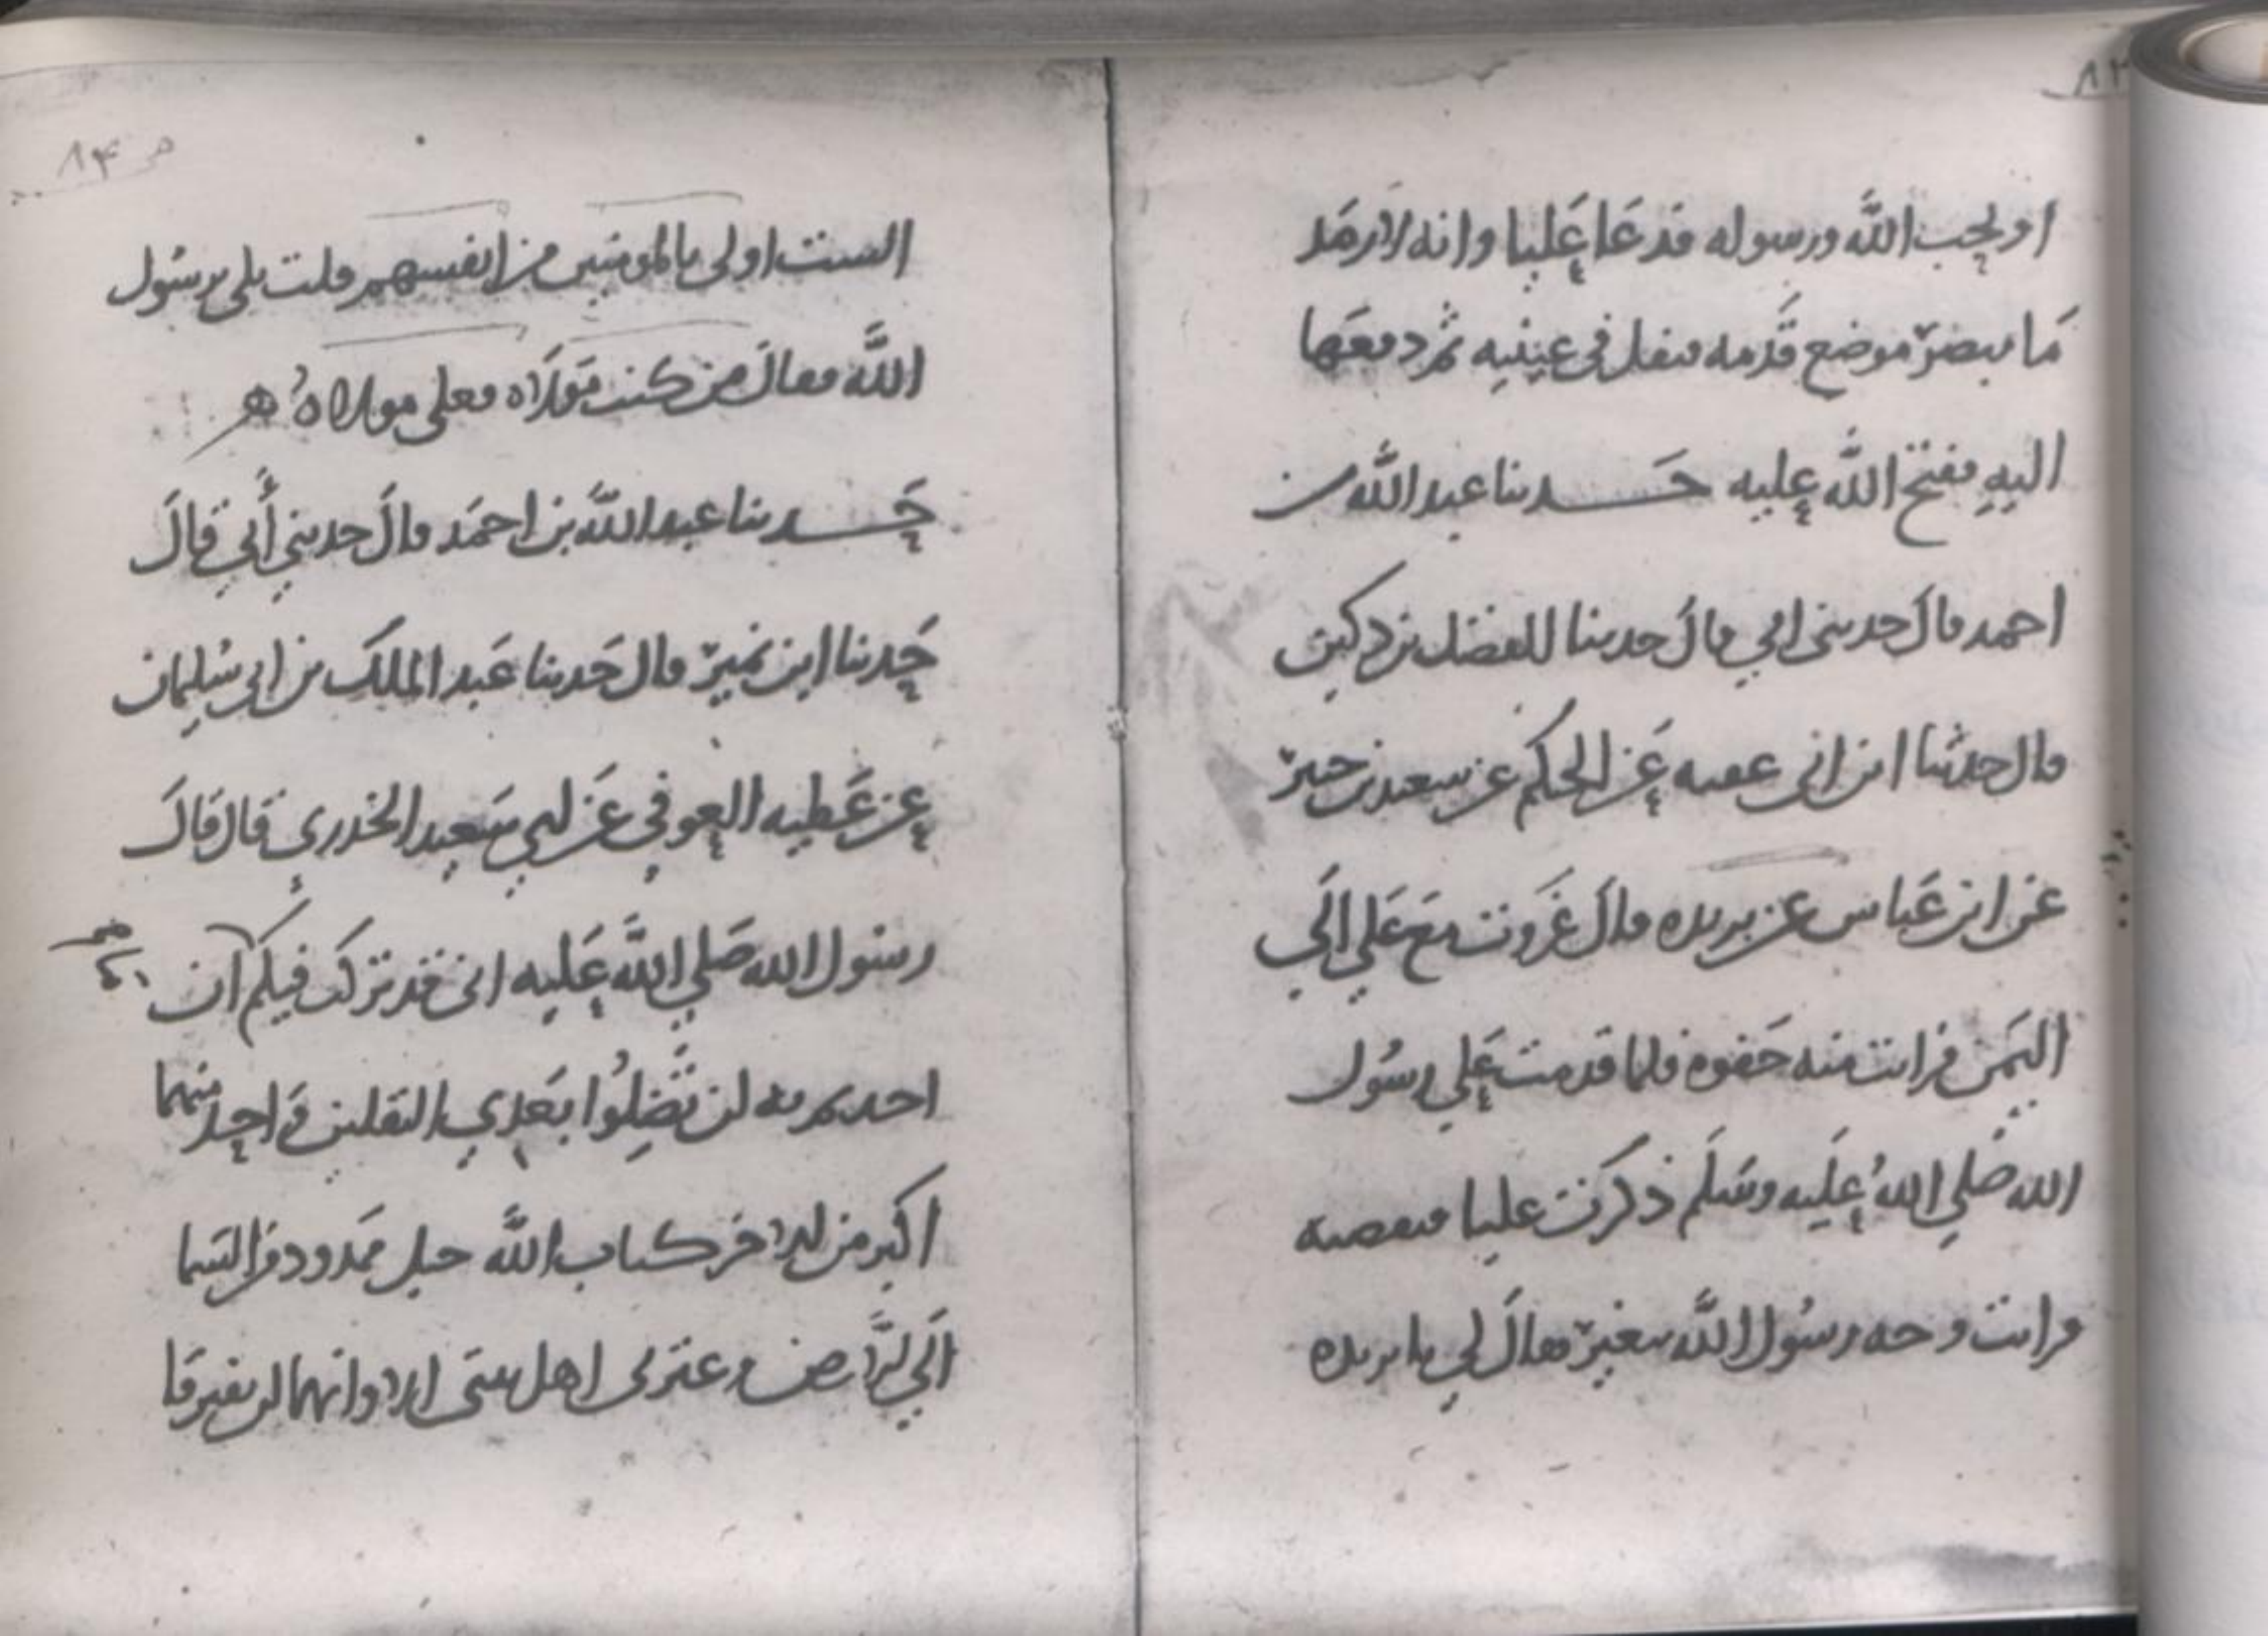 ٨٣
او يحب الله ورسوله فدعا عليا وانه لارمد
ما يبصر موضع قدمه فتفل في عينيه ثم دفعها
اليه ففتح الله عليه حدثنا عبد الله بن
احمد قال حدثني ابي قال حدثنا الفضل بن دكين
قال حدثنا ابن ابي عنيه عن الحكم عن سعيد بن جبير
عن ابن عباس عن بريده قال غزوت مع علي الي
اليمن فرايت منه جفوه فلما قدمت علي رسول
الله صلي الله عليه وسلم ذكرت عليا فتنقصته
فرايت وجه رسول الله يتغير فقال لي يا بريده
ص ٨٤
الست اولى بالمومنين من انفسهم قلت بلى يرسول
الله فقال من كنت مولاه فعلي مولاه
حدثنا عبد الله بن احمد قال حدثني أبي قال
حدثنا ابن نمير قال حدثنا عبد الملك بن ابي سليمان
عن عطيه العوفي عن ابي سعيد الخدري قال قال
رسول الله صلي الله عليه اني قد تركت فيكم ان
اخذتم به لن تضلوا بعدي الثقلين واحد منهما
اكبر من الاخر كتاب الله حبل ممدود من السما
الي الارض وعترتي اهل بيتي الا وانهما لن يفترقا